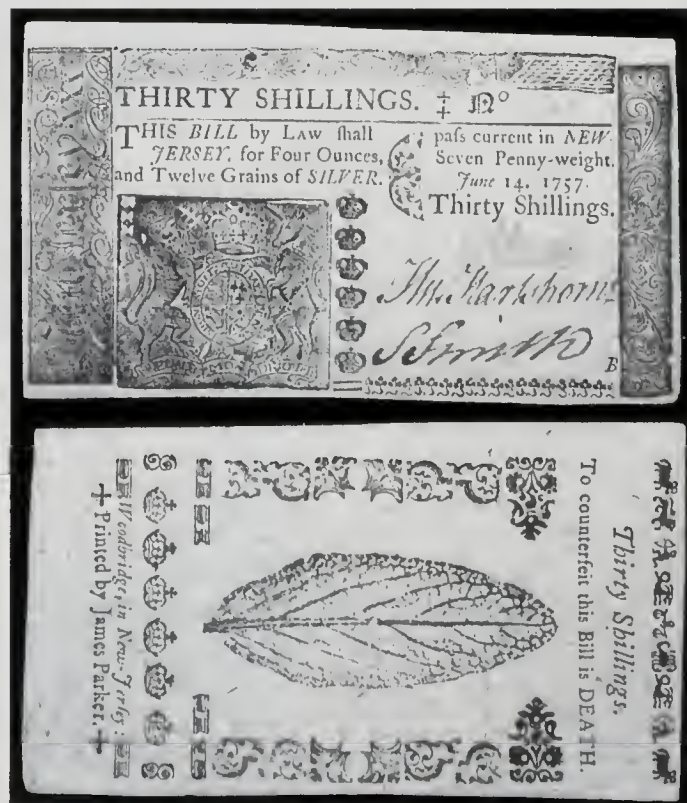 THIRTY SHILLINGS. ‡ No
THIS BILL by Law ſhall paſs current in NEW-
JERSEY, for Four Ounces, Seven Penny-weight,
and Twelve Grains of SILVER. June 14, 1757.
Thirty Shillings.
SSmith
B
Thirty Shillings.
To counterfeit this Bill is DEATH.
Woodbridge, in New-Jerſey:
Printed by James Parker.